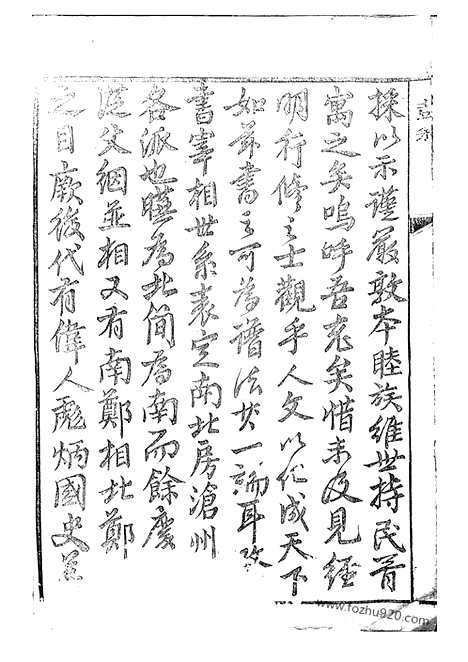 採以示謹嚴敦本睦族維世持民首
寓之矣嗚呼吾老矣惜未及見經
明行修之士觀乎人文以化成天下
如茲書之可為譜法火一論耳攷
書宰相世系表定南北房滄州
各派也曠為北簡為南而餘慶
從父絪並相又有南鄭相北鄭
之目厥後代有偉人彪炳國史蓋
www.fozhu920.com